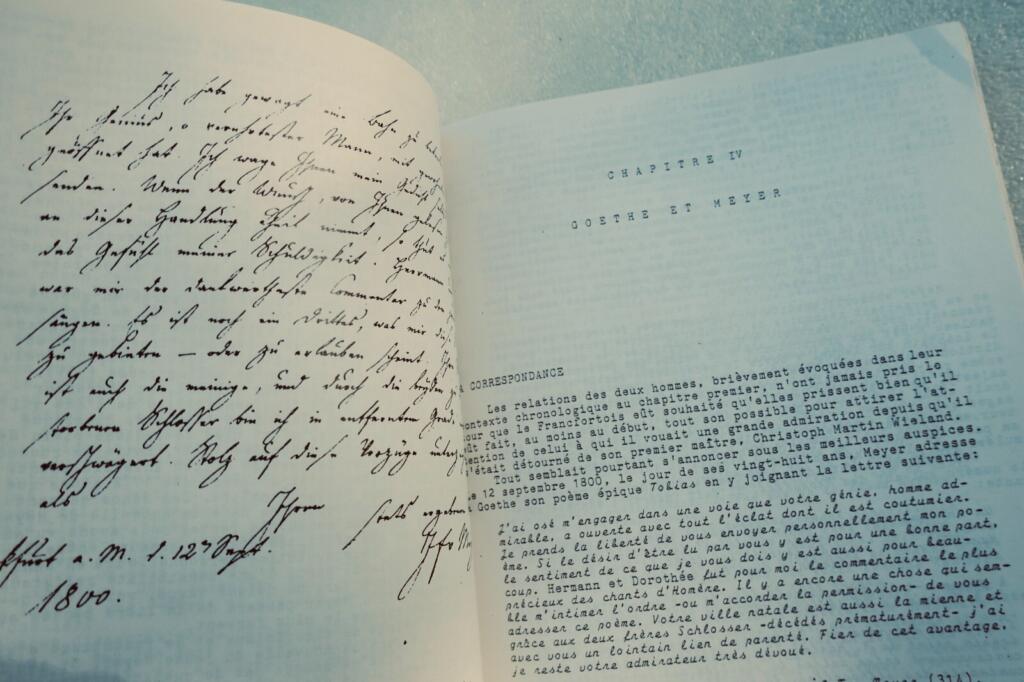 Ich habe gewagt eine Bahn zu
Ihr Genius, o verehrtester Mann, mit
geöffnet hat. Ich wage Ihnen mein Gedicht
senden. Wenn der Wunsch, von Ihnen gelesen
an dieser Handlung Theil nimmt, so thut es
das Gefühl meiner Schuldigkeit. Herrmann
war mir der dankwertheste Commentar zu den
sängen. Es ist noch ein Drittes, was mir
zu gebieten — oder zu erlauben scheint. Ihre
ist auch die meinige, und durch die beyden
storbenen Schlosser bin ich in entferntem Grad
verschwägert. Stolz auf diese Vorzüge
als
Ihren stets ergebenen
a. M. d. 12ⁿ Sept.
1800.
CHAPITRE IV
GOETHE ET MEYER
CORRESPONDANCE
Les relations des deux hommes, brièvement évoquées dans leur
contexte chronologique au chapitre premier, n'ont jamais pris le
tour que le Francfortois eût souhaité qu'elles prissent bien qu'il
eût fait, au moins au début, tout son possible pour attirer l'at-
tention de celui à qui il vouait une grande admiration depuis qu'il
s'était détourné de son premier maître, Christoph Martin Wieland.
Tout semblait pourtant s'annoncer sous les meilleurs auspices.
Le 12 septembre 1800, le jour de ses vingt-huit ans, Meyer adresse
à Goethe son poème épique Tobias en y joignant la lettre suivante:
J'ai osé m'engager dans une voie que votre génie, homme ad-
mirable, a ouverte avec tout l'éclat dont il est coutumier.
Je prends la liberté de vous envoyer personnellement mon po-
ème. Si le désir d'être lu par vous y est pour une bonne part,
le sentiment de ce que je vous dois y est aussi pour beau-
coup. Hermann et Dorothée fut pour moi le commentaire le plus
précieux des chants d'Homère. Il y a encore une chose qui sem-
ble m'intimer l'ordre -ou m'accorder la permission- de vous
adresser ce poème. Votre ville natale est aussi la mienne et
grâce aux deux frères Schlosser -décédés prématurément- j'ai
avec vous un lointain lien de parenté. Fier de cet avantage,
je reste votre admirateur très dévoué.
(314).